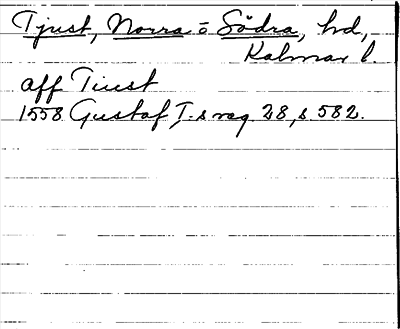 Tjust, Norra o Södra, hd,
Kalmar l.
aff Tiust
1558 Gustaf I.s reg 28, s. 582.